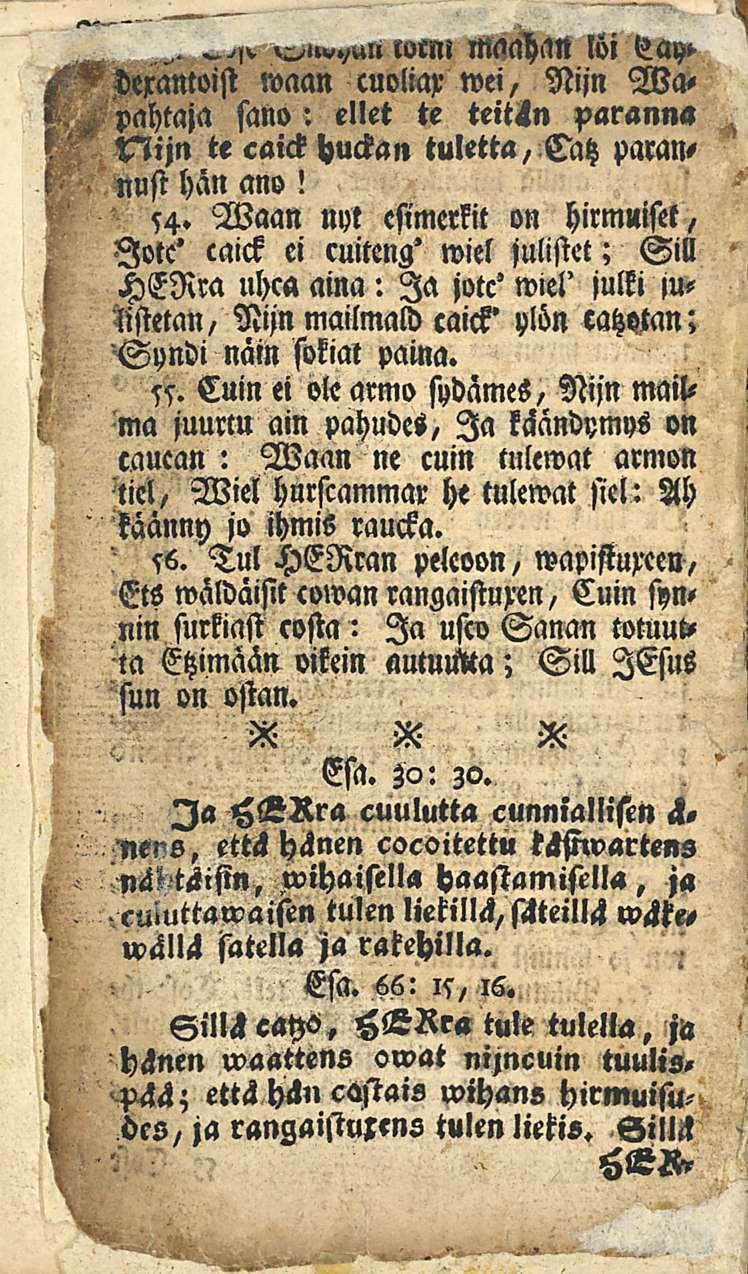 torni maahan löi Cah-
dexantoist waan cuoliax wei, Nijn Wa-
pahtaja sano: ellet te teitän paranna
Nijn te caick huckan tuletta, Catz paran-
nust hän ano!
54. Waan nyt esimerkit on hirmuiset,
Jotc' caick ei cuiteng' wiel julistet; Sill
HERra uhca aina: Ja jotc' wiel' julki ju-
listetan, Nijn mailmald caick' ylön catzotan;
Syndi näin sokiat paina.
55. Cuin ei ole armo sydämes, Nijn mail-
ma juurtu ain pahudes, Ja käändymys on
caucan: Waan ne cuin tulewat armon
tiel, Wiel hurscammax he tulewat siel: Ah
käänny jo ihmis raucka.
56. Tul HERran pelcoon, wapistuxeen,
Ets wäldäisit cowan rangaistuxen, Cuin syn-
nin surkiast costa: Ja usco Sanan totuut-
ta Etzimään oikein autuutta; Sill JEsus
sun on ostan.
※ ※ ※
Esa. 30: 30.
Ja HERra cuulutta cunniallisen ä-
nens, että hänen cocoitettu käsiwartens
nähtäisin, wihaisella haastamisella, ja
culuttawaisen tulen liekillä, säteillä wäke-
wällä satella ja rakehilla.
Esa. 66: 15, 16.
Sillä catzo, HERra tule tulella, ja
hänen waattens owat nijncuin tuulis-
pää; että hän costais wihans hirmuisu-
des, ja rangaistuxens tulen liekis. Sillä
HER-